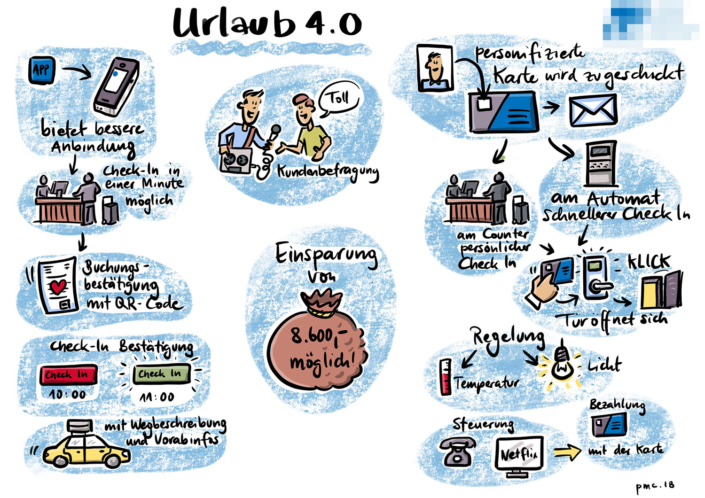 Urlaub 4.0
APP
bietet bessere
Anbindung
Check-In in
einer Minute
möglich
Buchungs-
bestätigung
mit QR-Code
Check-In Bestätigung
Check In
10:00
Check In
11:00
mit Wegbeschreibung
und Vorabinfos
Toll
Kundenbefragung
Einsparung
von
8.600,-
möglich!
personifizierte
Karte wird zugeschickt
am Automat
schnellerer Check In
am Counter
persönlicher
Check In
KLICK
Tür öffnet sich
Regelung
Temperatur
Licht
Steuerung
Netflix
Bezahlung
mit der Karte
pmc.18